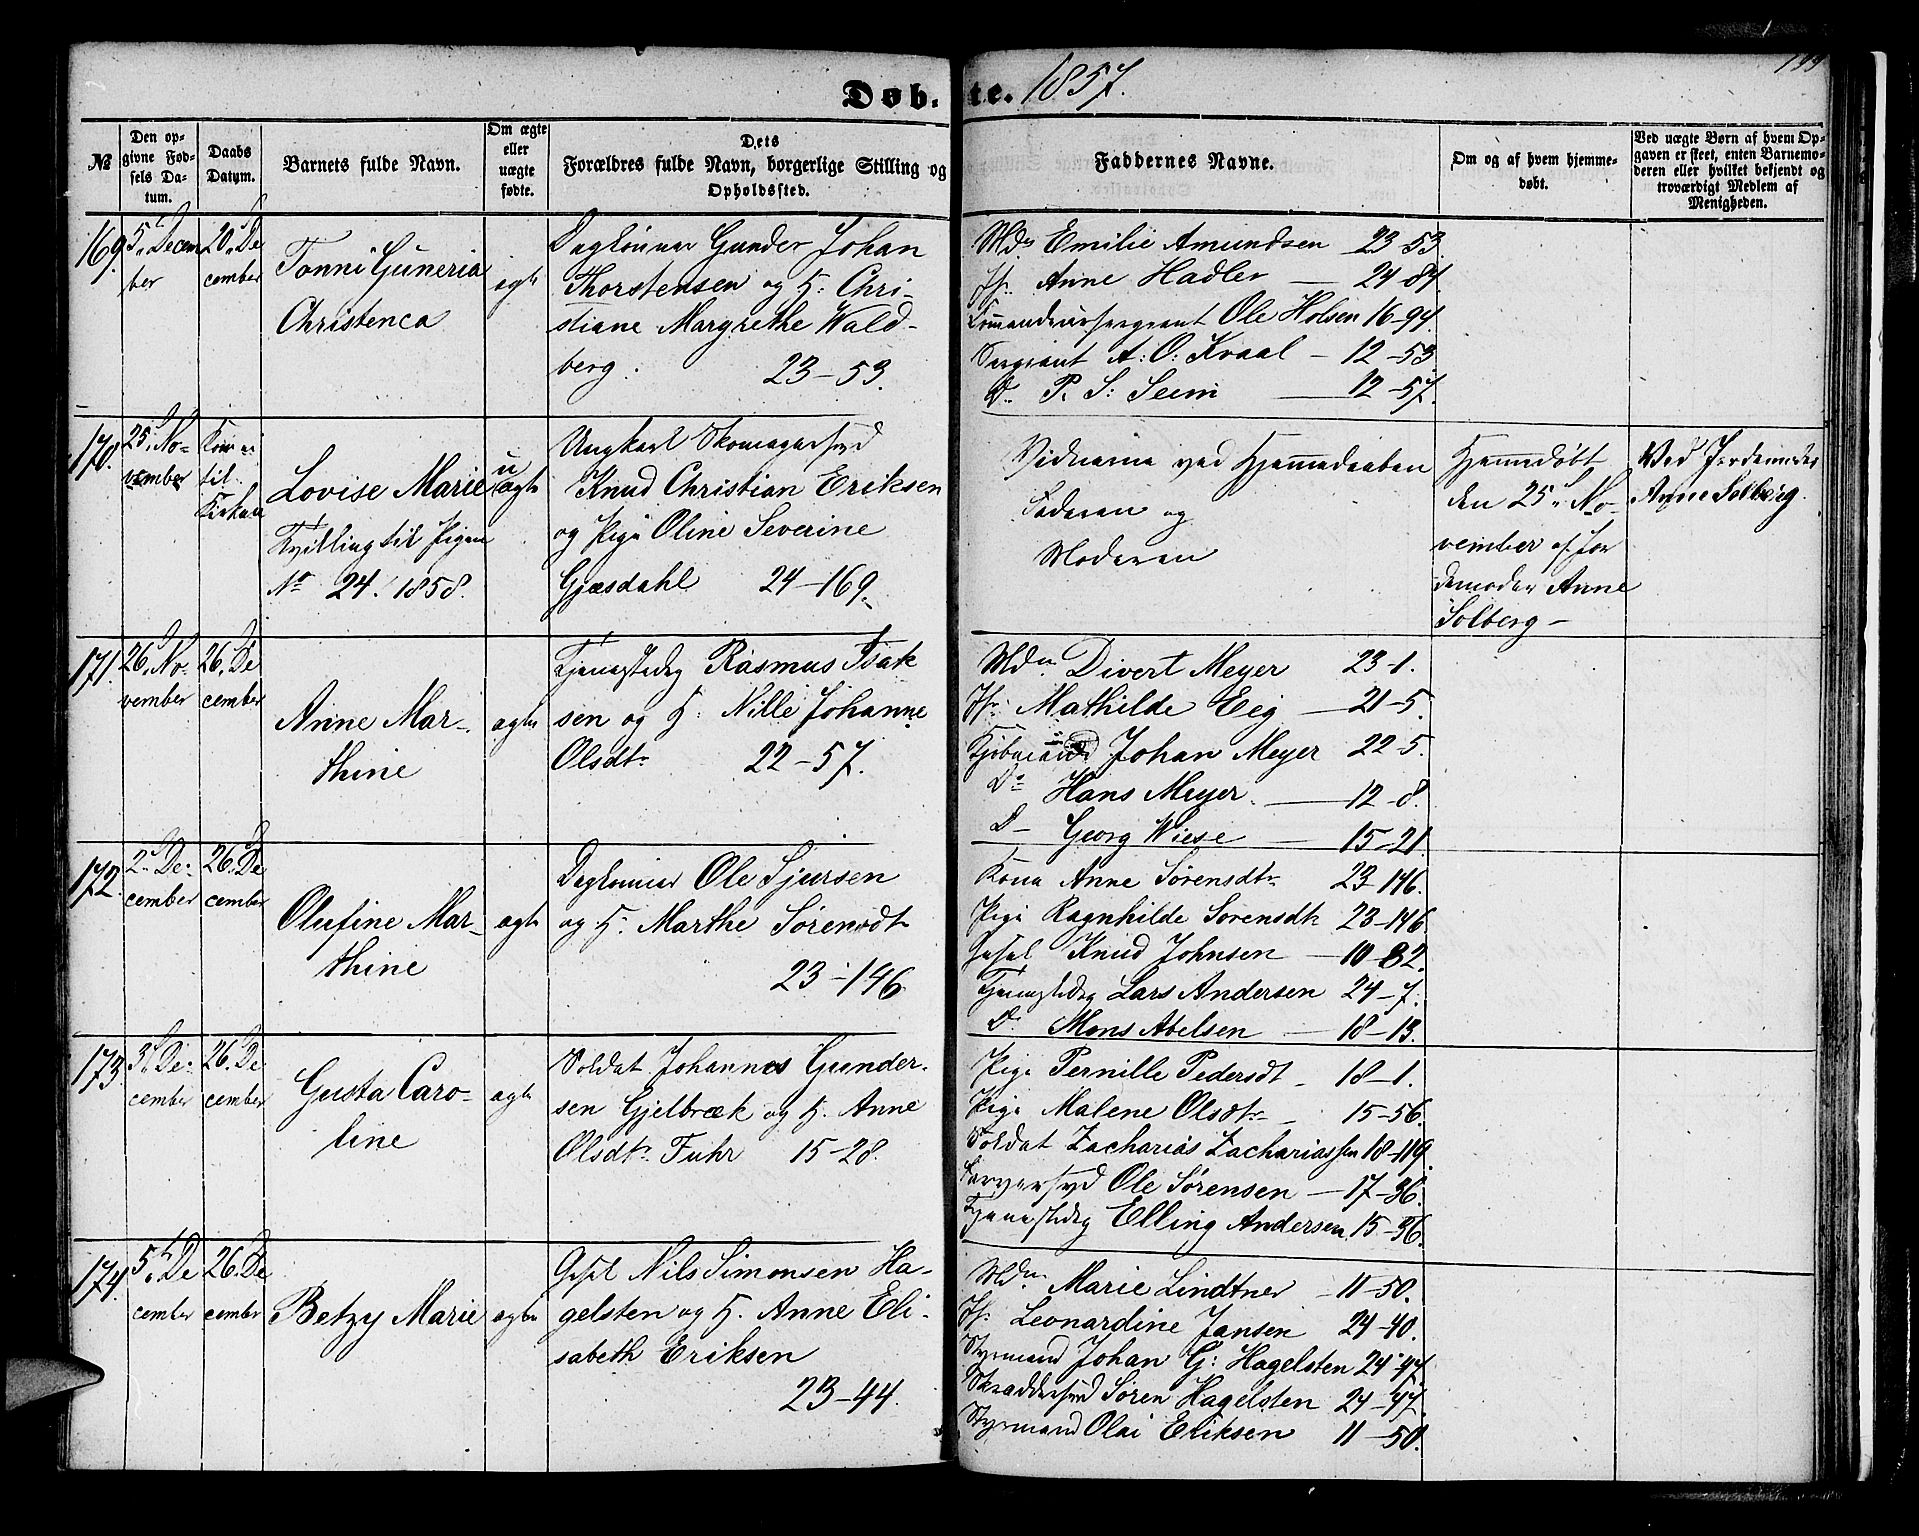 Døb. te. 1857.
№
Den opgivne Fødsels Datum.
Daabs Datum.
Barnets fulde Navn.
Om ægte eller uægte fødte.
Dets Forældres fulde Navn, borgerlige Stilling og Opholdssted.
Faddernes Navne.
Om og af hvem hjemmedøbt.
Ved uægte Børn af hvem Opgaven er skeet, enten Barnemoderen eller hvilket bekjendt og troværdigt Medlem af Menigheden.
169.
5. Decem
ber
20. De
cember
Tonni Guneria
Christenca
ægte
Dagleiner Gunder Johan
Thorstensen og H: Chri-
stiane Margrethe Wald-
berg. 23-53.
Mdm Emilie Amundsen 23-53.
Jfr. Anne Hadler 24-84.
Commandeursergeant Ole Holsen 16-94.
Sergeant A: O: Kvaal - 12-53.
Do P. S: Seim 12-57.
170.
25. No-
vember
Kom ei
til
Kirken
Lovise Marie
Tvilling til Pigen
No 24. 1858.
u
ægte
Ungkarl Skomagersvd
Knud Christian Eriksen
og Pige Oline Severine
Gjæsdahl 24-169.
Vidnerne ved Hjemmedaaben
Faderen og
Moderen
Hjemmedøbt
den 25. No-
vember af Jor
demoder Anne
Solberg-
Ved Jordemoder
Anne Solberg.
171.
26. No-
vember
26. De
cember
Anne Mar-
thine
ægte
Tjenestedrg Rasmus Isak
sen og H. Nille Johanne
Olsdtr 22-57.
Mdm. Divert Meyer 23-1.
Jfr Mathilde Eeg - 21-5.
Kjøbmand Johan Meyer 22-5.
Do Hans Meyer. 12-8.
D- Georg Wiese - 15-21.
172.
2. De-
cember
26. De
cember
Olufine Mar-
thine
ægte
Dagleiner Ole Sjursen
og H. Marthe Sørensdt
23-146.
Kone Anne Sørensdtr 23-146.
Pige Ragnhilde Sørensdtr 23-146.
Gesel Knud Johnsen - 10-82.
Tjenestedrg Lars Andersen 24-7.
D. Mons Abelsen - 18-13.
173.
3. De-
cember
26. De
cember
Gusta Caro-
line
ægte
Soldat Johannes Gunder-
sen Gjelbræk og H. Anne
Olsdtr. Fuhr 15-28.
Pige Pernille Pedersdt - 18-1.
Pige Malene Olsdtr - 15-56.
Soldat Zacharias Zachariassen 18-119.
Farversvd Ole Sørensen - 17-36.
Tjenestedrg Elling Andersen 15-36.
174.
5. De
cember
26. De
cember
Betzy Marie
ægte
Gesel Nils Simonsen Ha-
gelsten og H. Anne Eli-
sabeth Eriksen
23-44.
Mdm. Marie Lindtner - 11-50.
Jfr. Leonardine Jansen 24-40.
Styrmand Johan G: Hagelsten 24-47.
Skræddersvd Søren Hagelsten 24-47.
Styrmand Olai Eriksen 11-50.